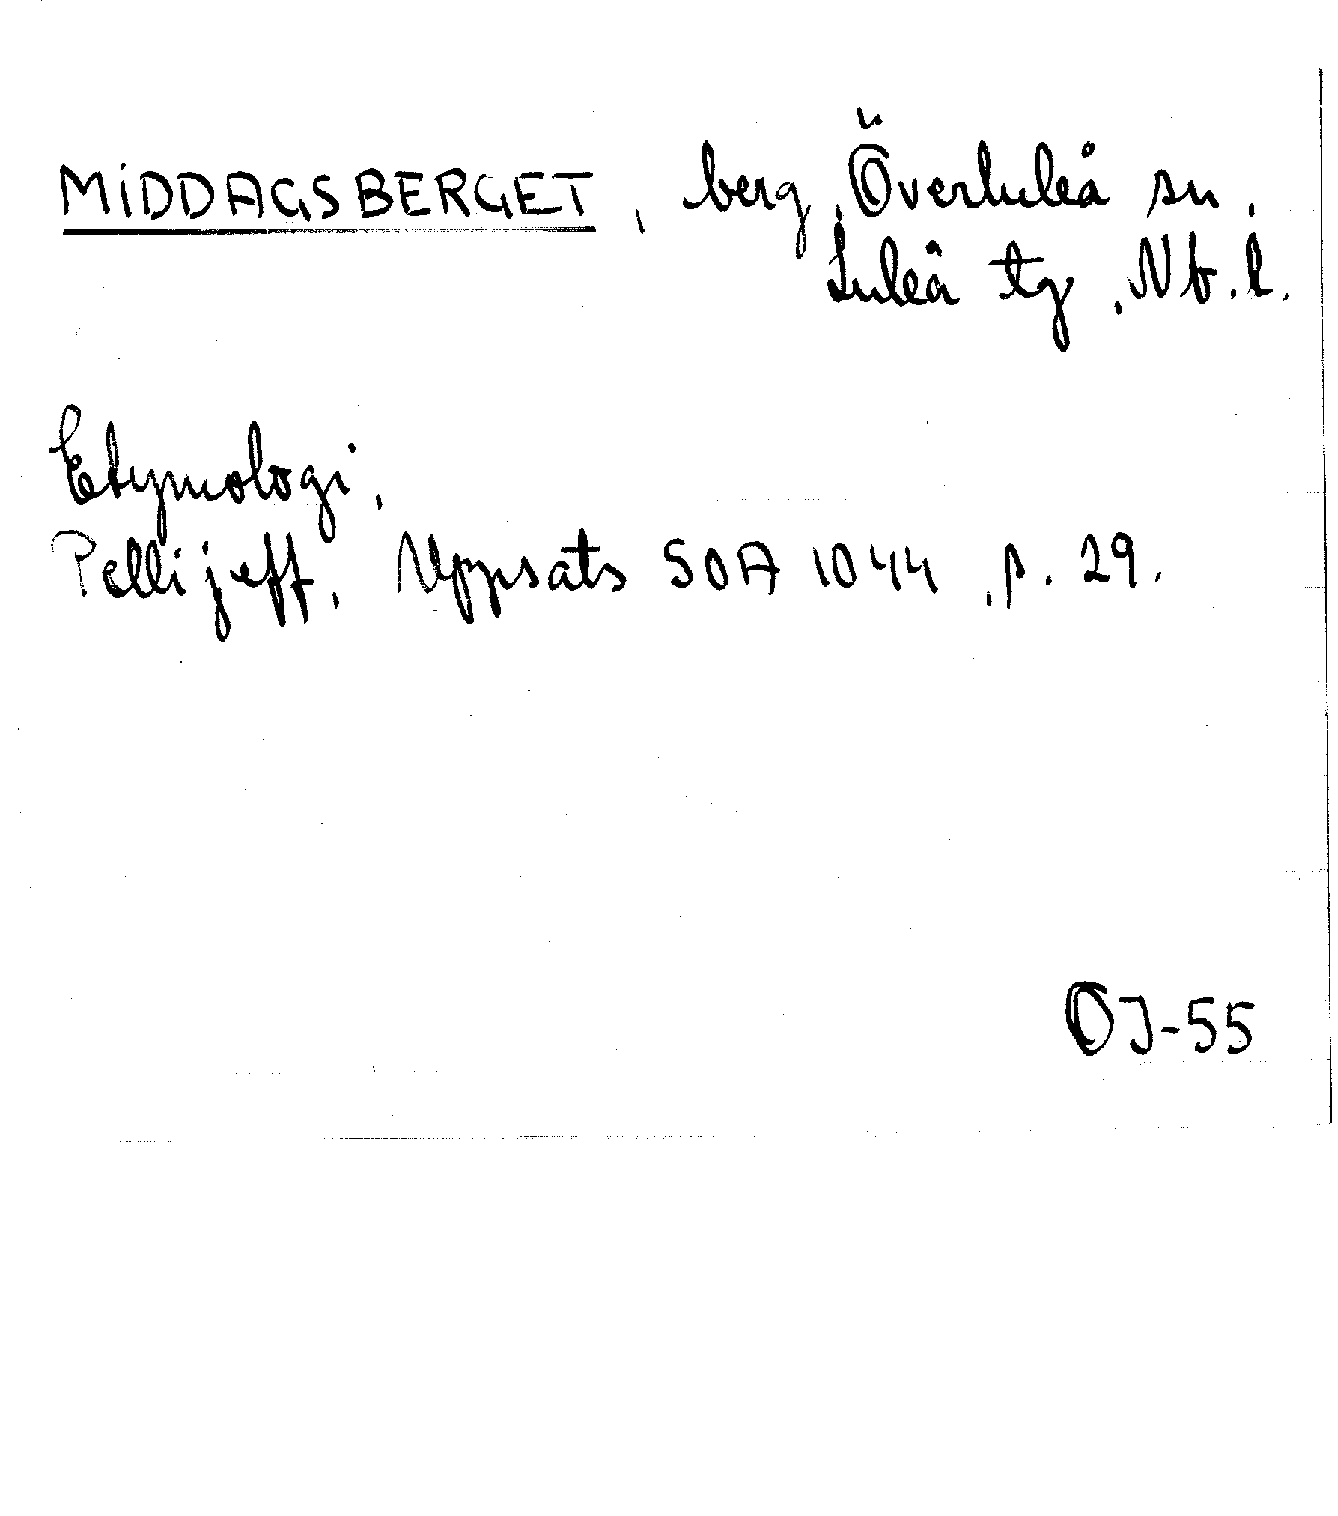 MIDDAGSBERGET, berg, Överluleå sn,
Luleå tg, Nb. l.
Etymologi,
Pellijeff, Uppsats SOA 1044, p. 29.
OJ-55